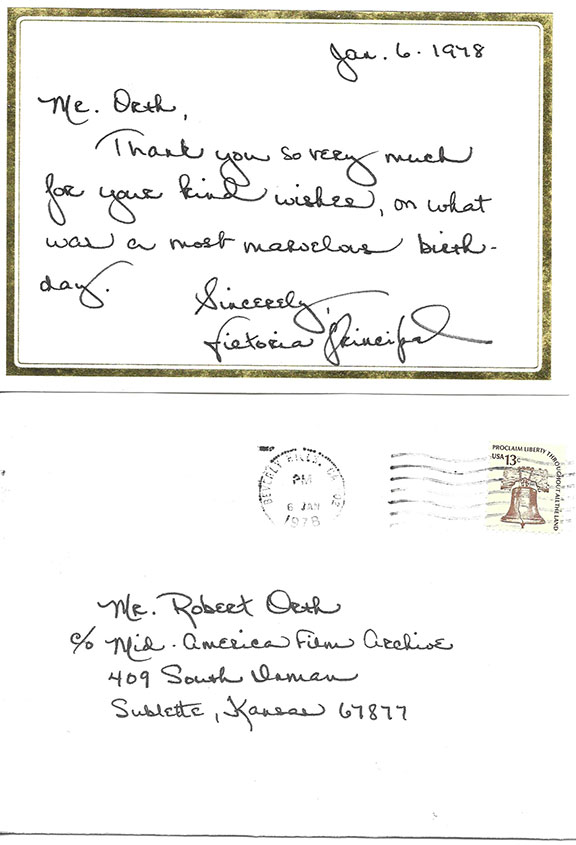 Jan. 6. 1978
Mr. Orth,
Thank you so very much
for your kind wishes, on what
was a most marvelous birth-
day.
Sincerely,
Victoria Principal
BEVERLY HILLS, CA
PM
6 JAN
1978
PROCLAIM LIBERTY THROUGHOUT ALL THE LAND
USA 13c
Mr. Robert Orth
c/o Mid-America Film Archive
409 South Inman
Sublette, Kansas 67877